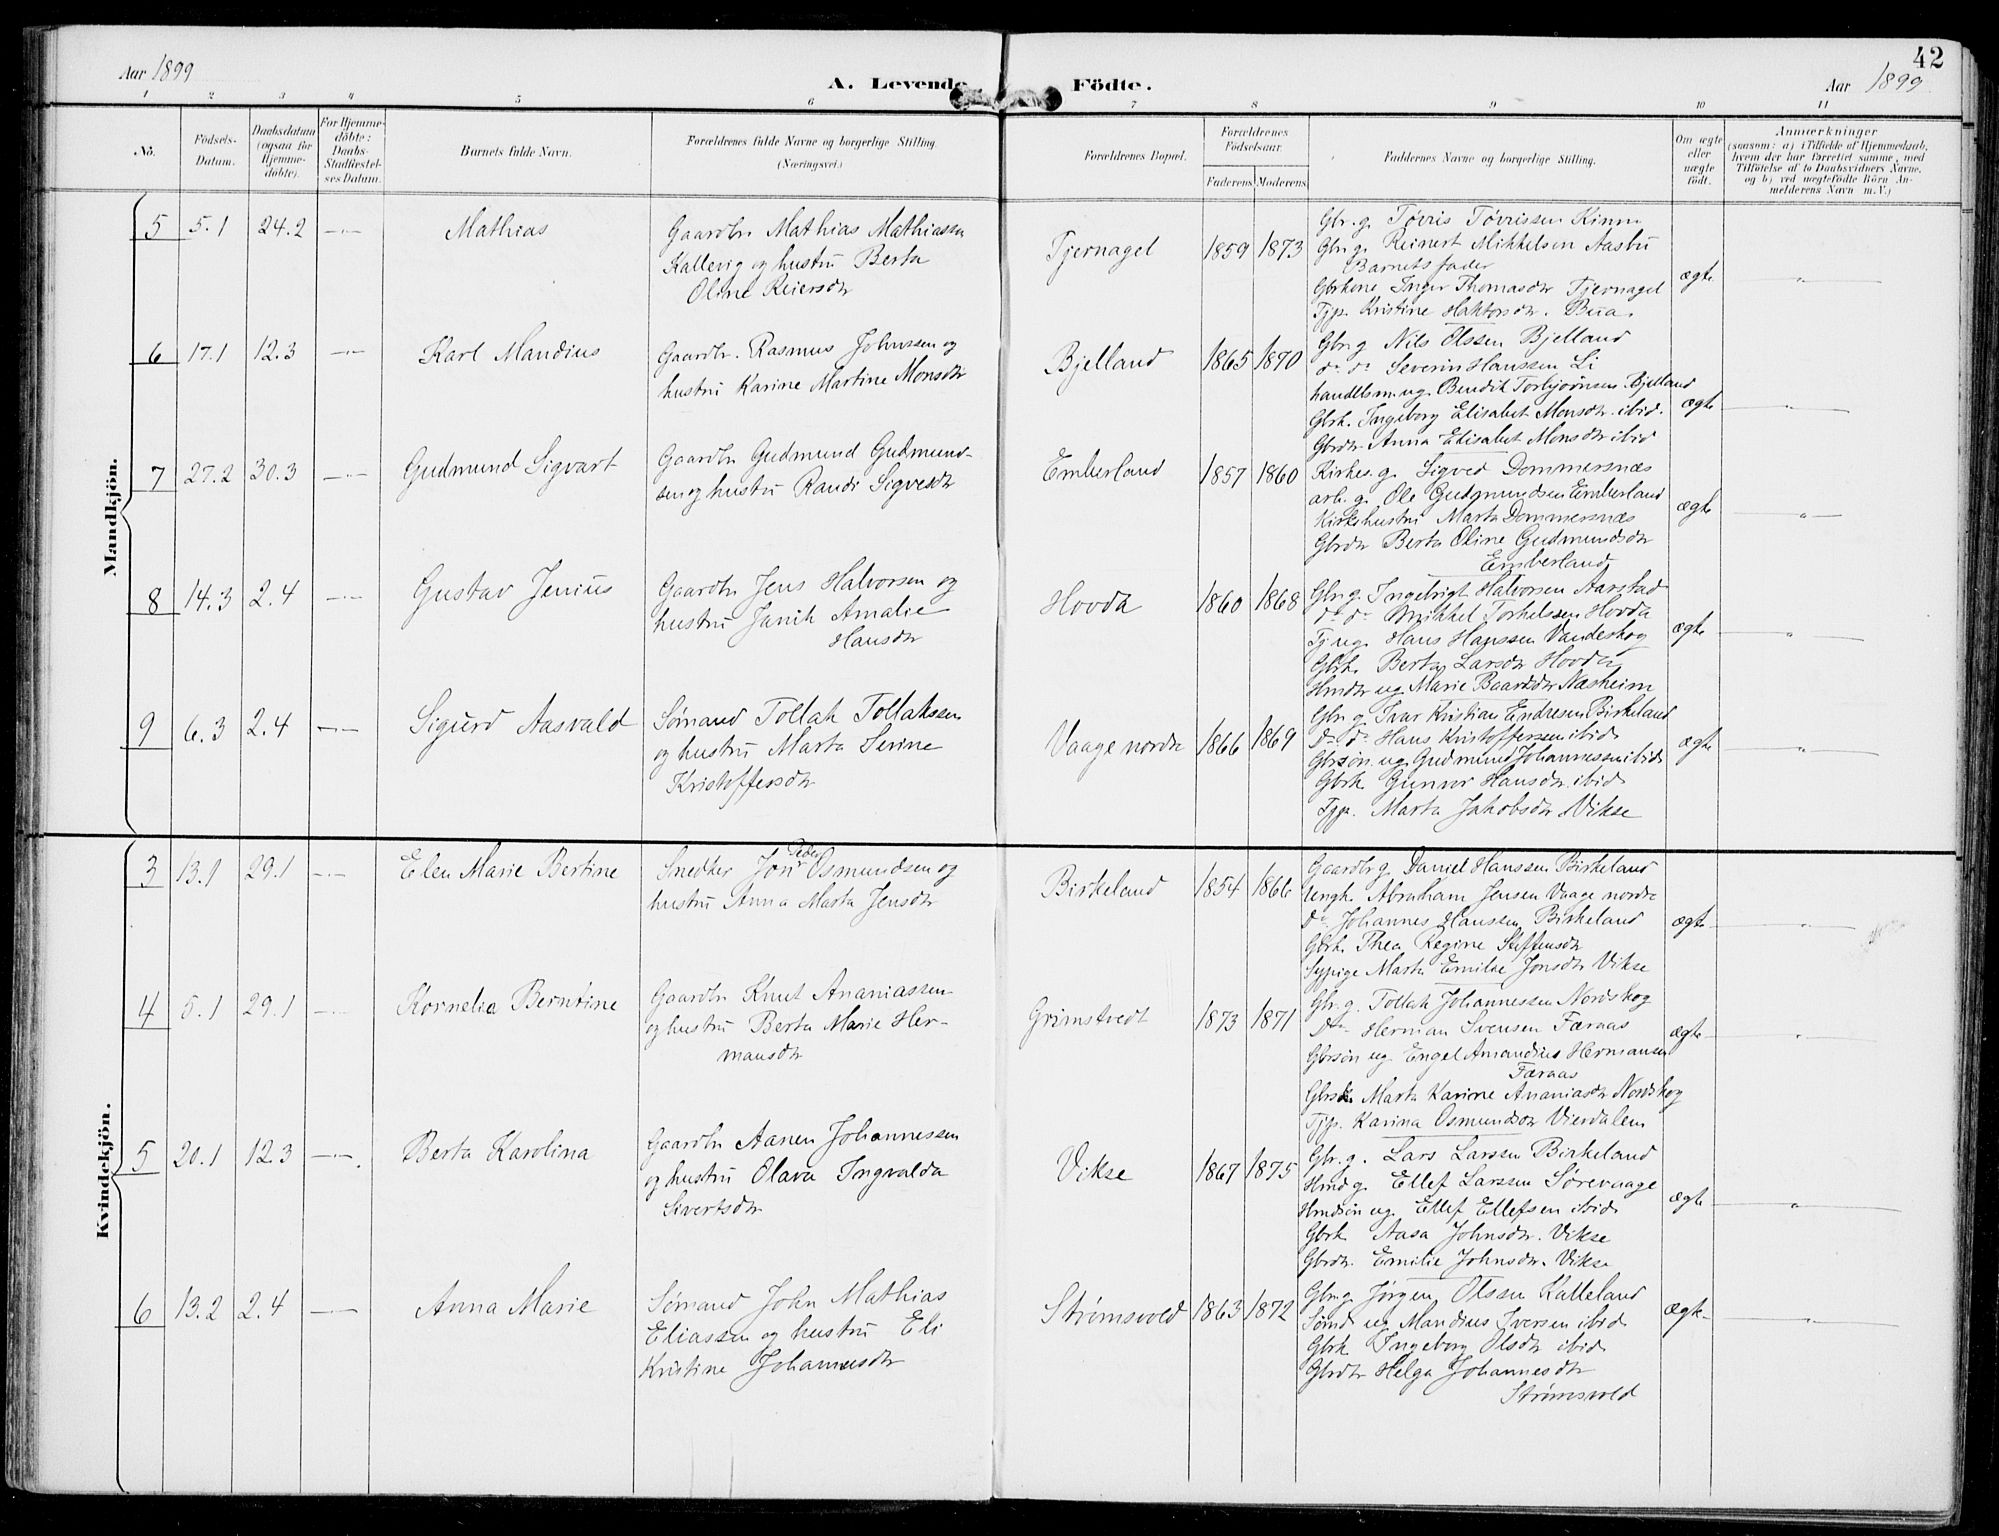 Aar 1899
A. Levende Födte.
Aar 1899.
42
1 2 3 4 5 6 7 8 9 10 11
No.
Födsels-
Datum.
Daabsdatum
(ogsaa for
Hjemme-
döbte).
For Hjemme-
döbte:
Daabs-
Stadfæstel-
ses Datum.
Barnets fulde Navn.
Forældrenes fulde Navne og borgerlige Stilling.
(Næringsvei.)
Forældrenes Bopæl.
Forældrenes
Födselsaar.
Faderens. Moderens.
Faddernes Navne og borgerlige Stilling.
Om ægte
eller
uægte
født.
Anmærkninger
(saasom: a) i Tilfælde af Hjemmedaab,
hvem der har forrettet samme, med
Tilføielse af to Daabsvidners Navne,
og b) ved uægtefødte Börn An-
melderens Navn m. V.)
Mandkjön.
5 5.1 24.2 —"— Mathias
Gaardbr Mathias Mathiassen
Kallevig og hustru Berta
Oline Reiersdtr
Tjernagel 1859 1873
Gbr. g. Tøvris Tøvrissen Kinn
Gbr. g. Reinert Mikkelsen Aasbu
Barnets fader
Gbrkone Inger Thomasdtr Tjernagel
Tjp. Kristine Haktorsdtr. Bua.
ægte —"—
6 17.1 12.3 —"— Karl Mandius
Gaardbr. Rasmus Johnssen og
hustru Karine Martine Monsdtr
Bjelland 1865 1870
Gbr. g Nils Olssen Bjelland
do. do. Severin Hanssen Li
handelsm. ug. Bendik Torbjørnsen Bjelland
Gbrk. Ingeborg Elisabet Monsdtr. ibid.
Gbrdtr. Anna Elisabet Monsdtr ibid
ægte —"—
7 27.2 30.3 —"— Gudmund Sigvart
Gaardbr Gudmund Gudmund-
sen og hustru Randi Sigvesdtr
Emberland 1857 1860
Kirkes. g. Sigved Dommersnæs
arb. g. Ole Gudmundsen Emberland
Kirkshustru Marta Dommersnæs
Gbrdtr Berta Oline Gudmundsdtr
Emberland
ægte —"—
8 14.3 2.4 —"— Gustav Jenius
Gaardbr Jens Halvorsen og
hustru Janik Amalie
Hansdtr
Hovda 1860 1868
Gbr. g. Ingebrigt Halvorsen Aarstad
do. do. Mikkel Torkelssen Hovda
Tj. ug. Hans Hanssen Vandeskog
Gbrk. Berta Larsdtr Hovda
Hmdtr ug Marie Baardsdtr Næsheim
ægte —"—
9 6.3 2.4 —"— Sigurd Aasvald
Sømand Tollak Tollakssen
og hustru Marta Serine
Kristoffersdtr
Vaage nordre 1866 1869
Gbr. g. Ivar Kristian Endresen Birkeland
do. do. Hans Kristoffersen ibid
Gbrsøn. ug. Gudmund Johannessen ibid
Gbrk Gunnor Hansdtr. ibid
Tjp. Marta Jakobsdtr Vikse
ægte —"—
Kvindekjön.
3 13.1 29.1 —"— Elen Marie Bertine
Snedker Jon Peder Osmundsen og
hustru Anna Marta Jensdtr
Birkeland 1854 1866
Gaardb. g. Daniel Hanssen Birkeland
Ungk. Abraham Jensen Vaage nordre
do. Johannes Hanssen Birkeland
Gbrk. Thea Regine Steffensdtr
Sypige Marta Emilie Jonsdtr Vikse
ægte —"—
4 5.1 29.1 —"— Kornelia Berntine
Gaardbr Knut Ananiassen
og hustru Berta Marie Her-
mansdtr
Grimstvedt 1873 1871
Gbr. g. Tollak Johannessen Nordskog
do Herman Svensen Færaas
Gbrsøn ug. Engel Amandius Hermansen
Færaas
Gbrsk. Marta Karine Ananiasdtr Nordskog
Tjp. Karina Osmundsdtr Vierdalem
ægte —"—
5 20.1 12.3 —"—. Berta Karolina
Gaardbr Aanen Johannessen
og hustru Olava Ingvalda
Sivertsdtr
Vikse 1867 1875
Gbr. g. Lars Larssen Birkeland
Hmd g. Ellef Larssen Sørevaage
Hmdsøn ug. Ellef Ellefsen ibid
Gbrk Aasa Johnsdtr. Vikse
Gbrdtr. Emilie Johnsdtr. Vikse
ægte —"—
6 13.2 2.4 —"— Anna Marie
Sømand John Mathias
Eliassen og hustru Eli
Kristine Johannesdtr
Strømsvold 1863 1872
Gbr. g Jørgen Olssen Kalleland
Sømd ug Mandius Iversen ibid
Gbrk Ingeborg Olsdtr ibid
Gbrdtr Helga Johannesdtr
Strømsvold
ægte —"—